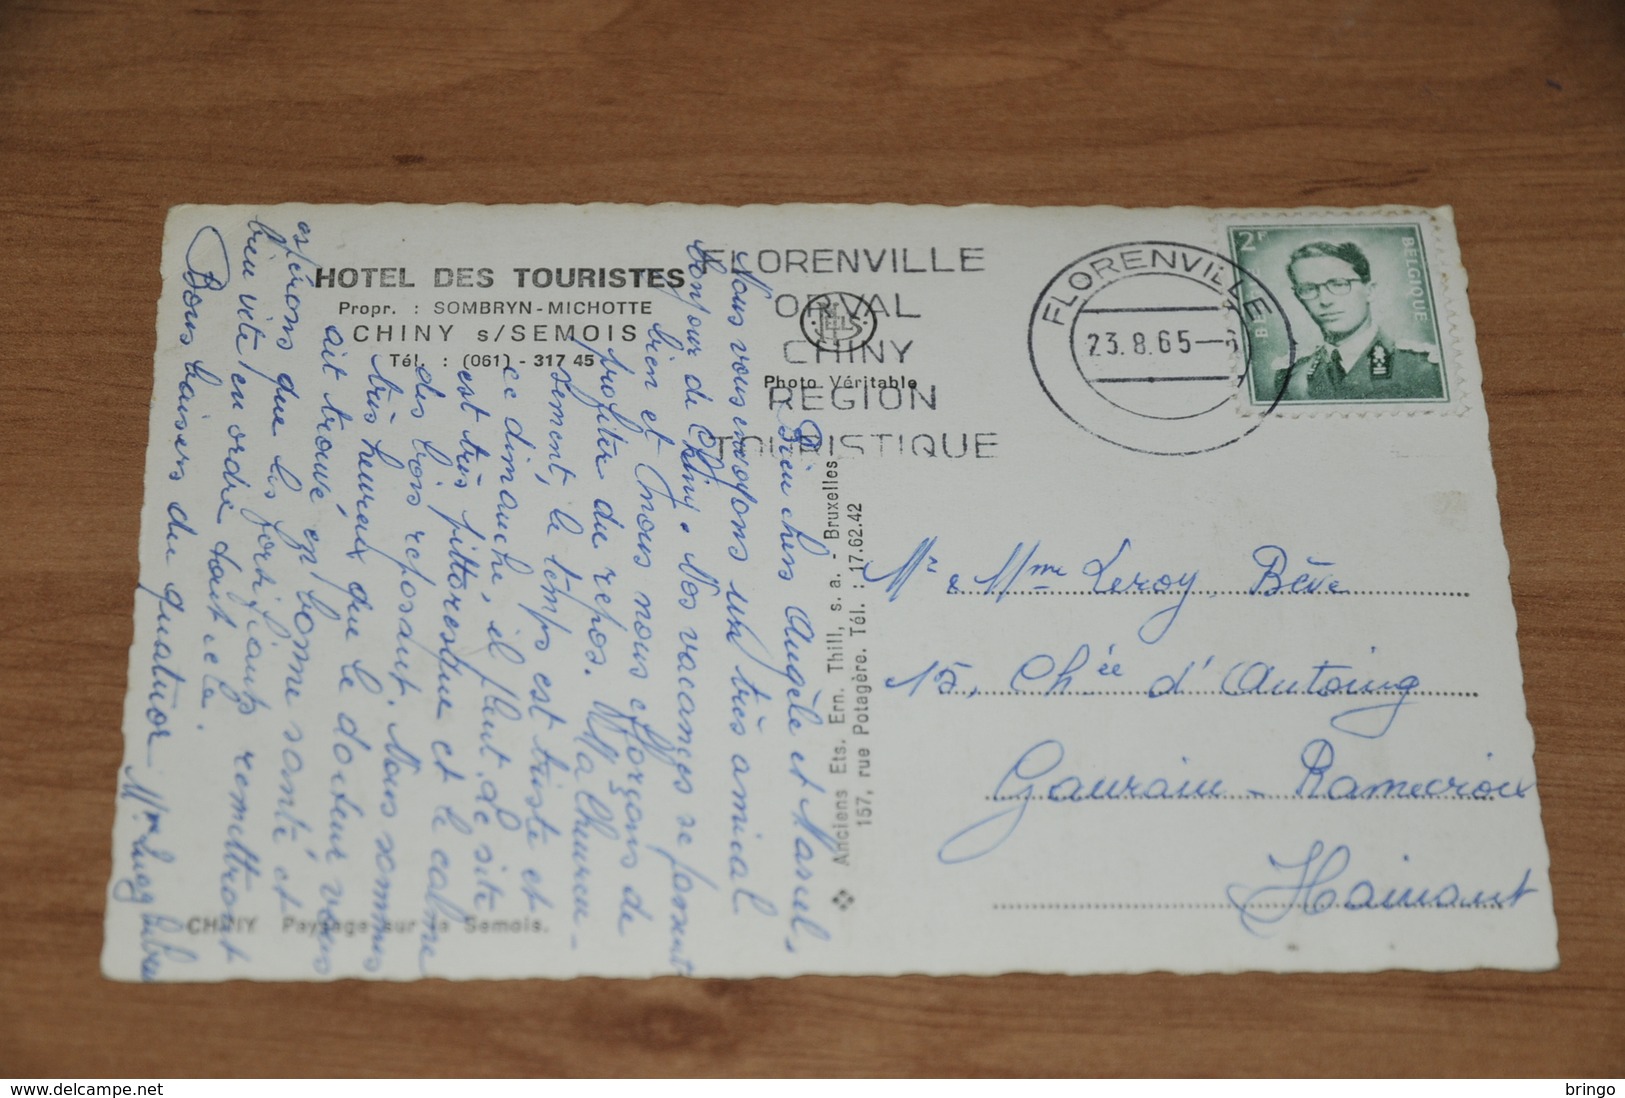 HOTEL DES TOURISTES
Propr. : SOMBRYN-MICHOTTE
CHINY s/SEMOIS
Tél. : (061) - 317 45
NELS
Photo Véritable
FLORENVILLE
ORVAL
CHINY
REGION
TOURISTIQUE
FLORENVILLE
23.8.65
2F
BELGIQUE
BELGIE
Bien chers Angèle et Marcel,
Nous vous envoyons un très amical
bonjour de Chiny. Nos vacances se passent
bien et nous nous efforçons de
profiter du repos. Malheureu-
sement, le temps est triste et
ce dimanche, il pleut. Le site
est très pittoresque et le calme
des bois reposant. Nous sommes
très heureux que le docteur vous
ait trouvé en bonne santé et
espérons que les fortifiants remettront
bien vite en ordre tout cela.
Bons baisers du quatuor
CHINY Paysage sur la Semois.
Anciens Ets. Ern. Thill, s. a. - Bruxelles
157, rue Potagère. Tél. : 17.62.42
Mr & Mme Leroy, Bève
15, Chée d'Antoing
Gaurain - Ramecroix
Hainaut
delcampe.net
bringo